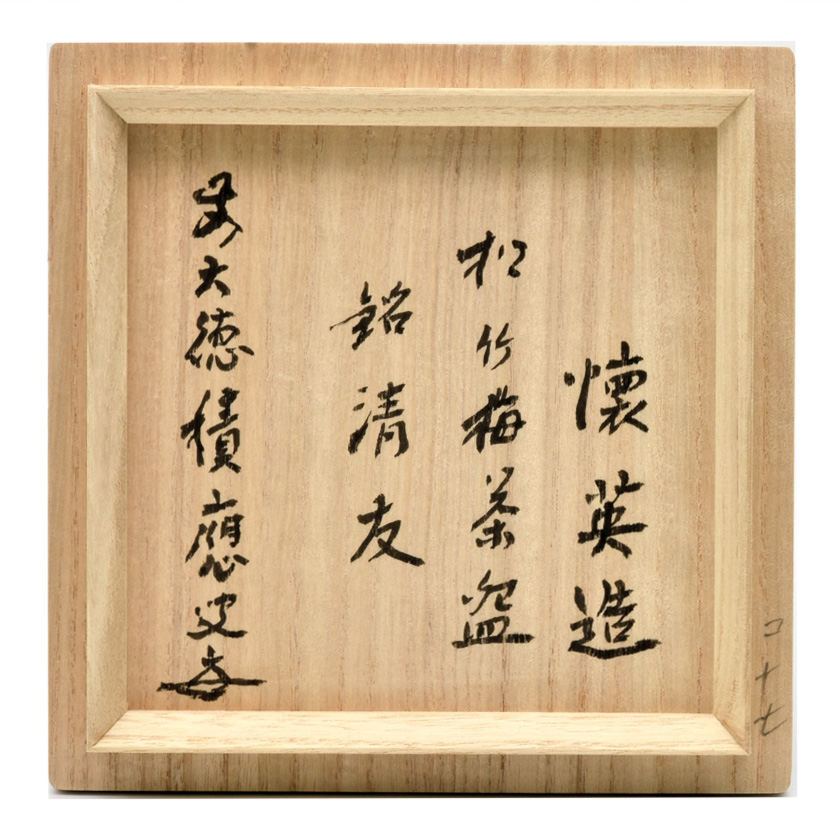 懐英造
松竹梅茶盌
銘清友
前大徳積應叟
コナセ